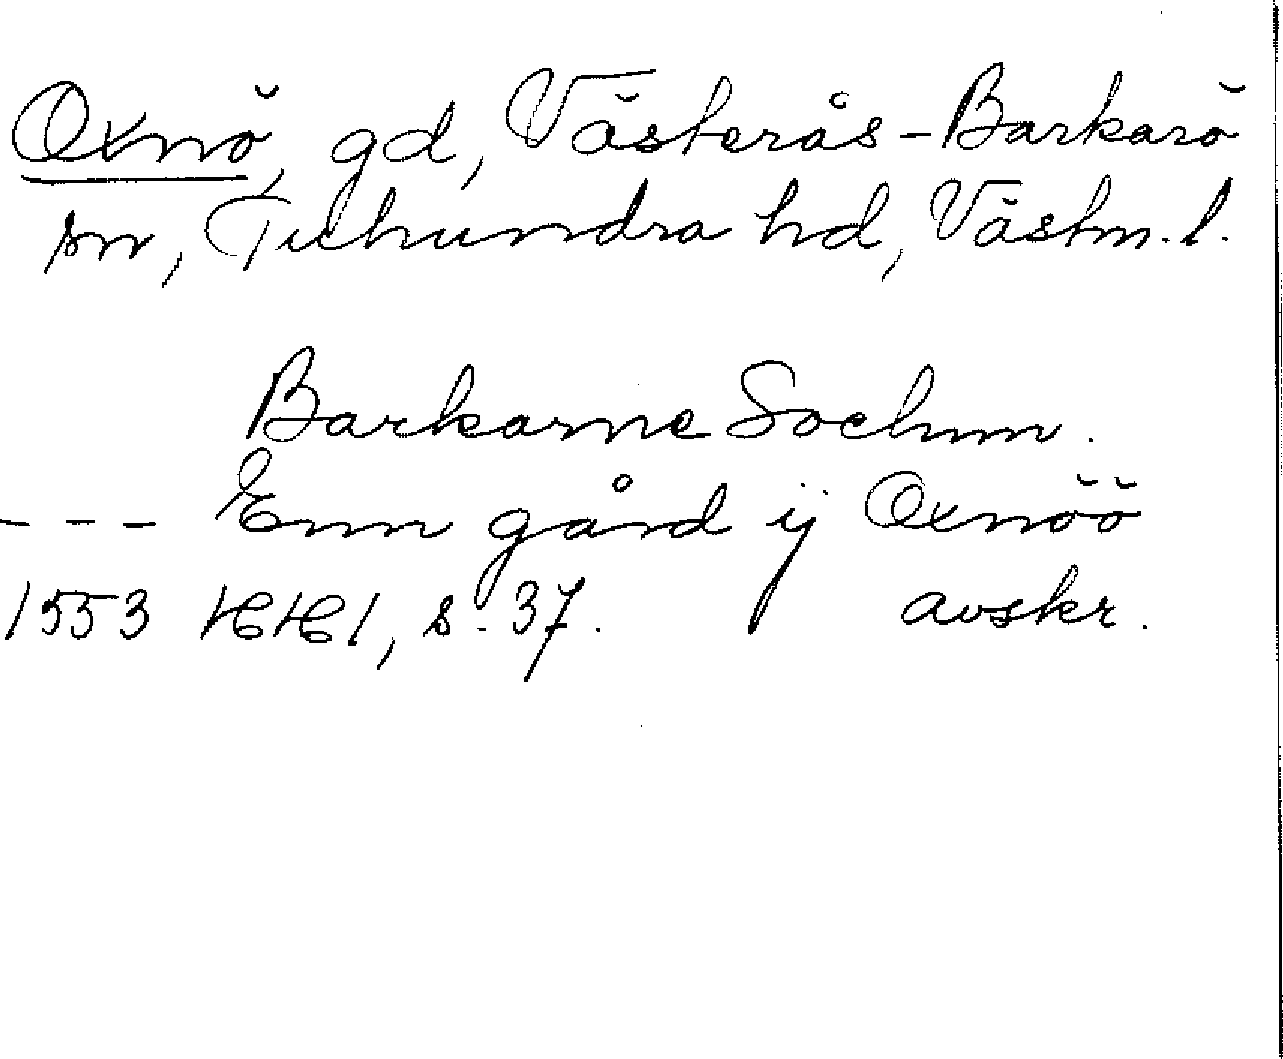 Oxnö, gd, Västerås-Barkarö
sn, Tuhundra hd, Västm. l.
Barkarne Sochnn.
--- Enn gård ij Oxnöö
1553 HH1, s. 37. avskr.